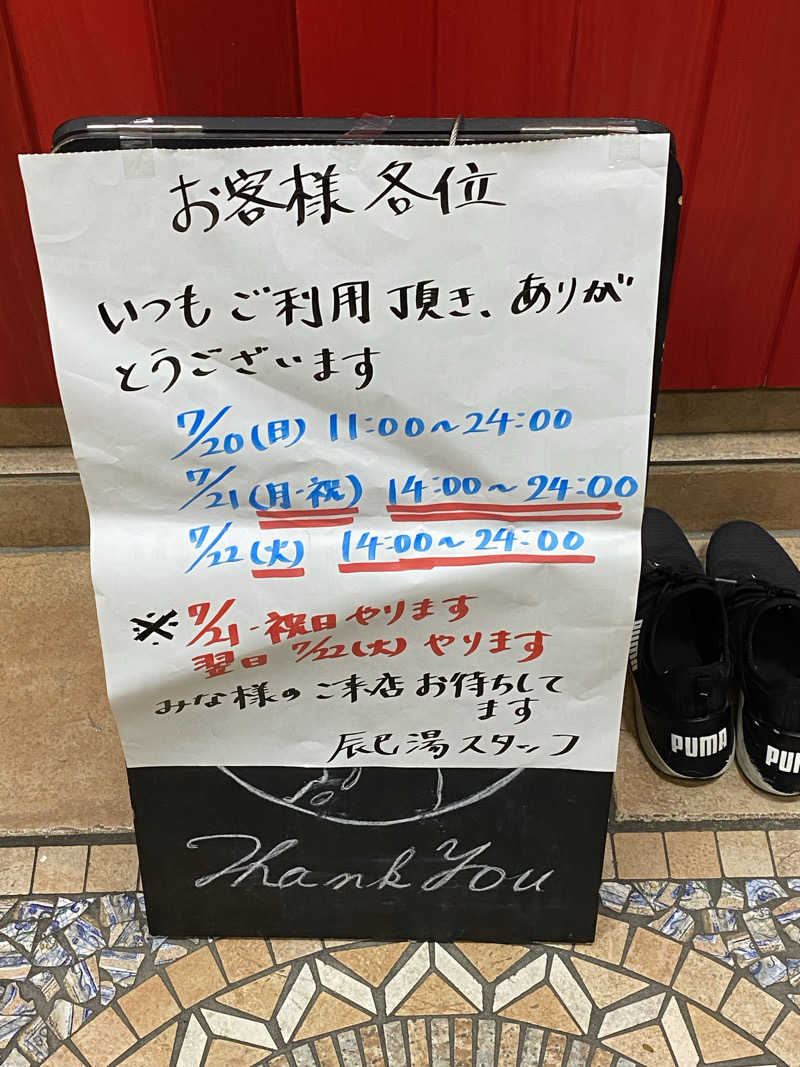 お客様各位
いつもご利用頂き、ありが
とうございます
7/20(日) 11:00~24:00
7/21(月・祝) 14:00~24:00
7/22(火) 14:00~24:00
※7/21・祝日やります
翌日 7/22(火) やります
みな様のご来店お待ちして
ます
辰巳湯スタッフ
Thank You
PUMA
PU